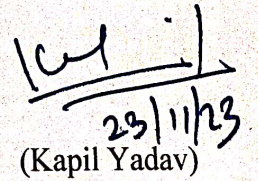 23/11/23
(Kapil Yadav)